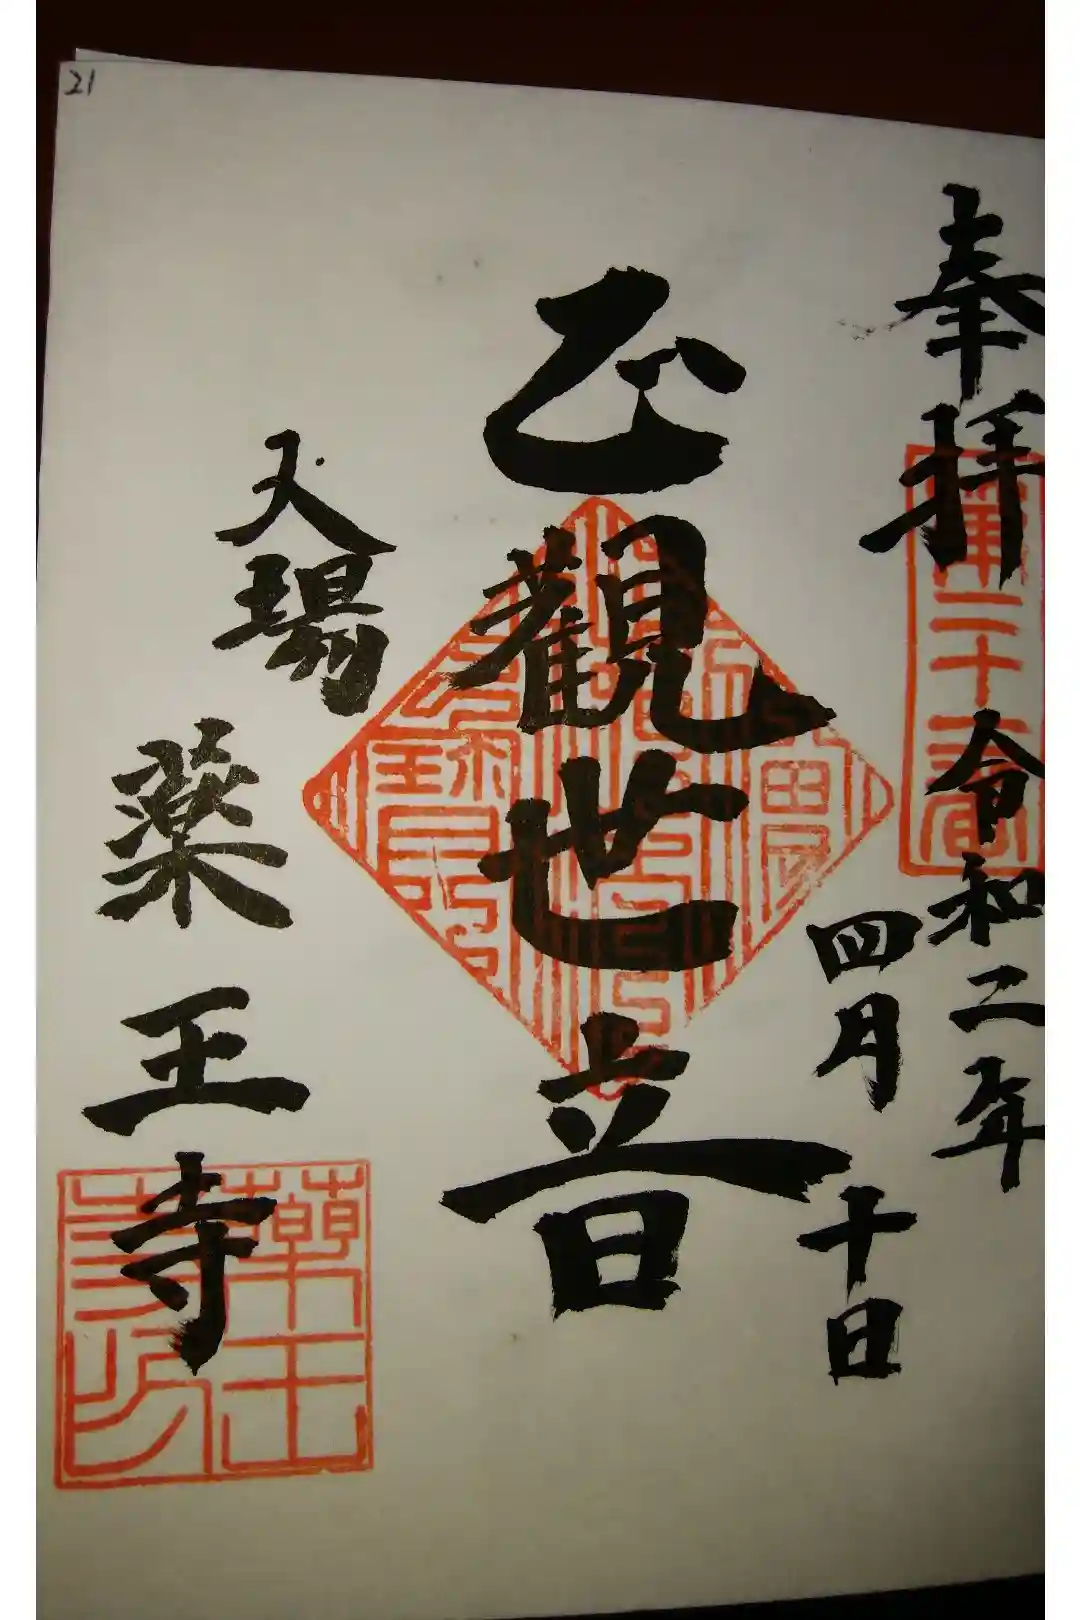 21
奉拝
第二十
令和二年
四月十日
正觀世音
場
薬王寺
薬王寺印